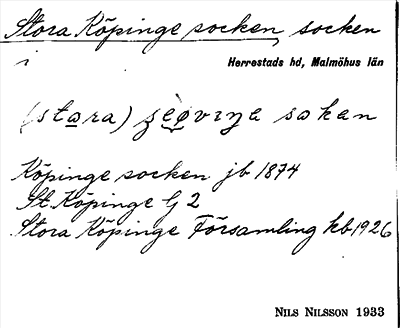 Stora Köpinge socken, socken
i
Herrestads hd, Malmöhus län
(stara)
Köpinge socken jb 1874
St. Köpinge Gj 2
Stora Köpinge Församling kb 1926
NILS NILSSON 1933